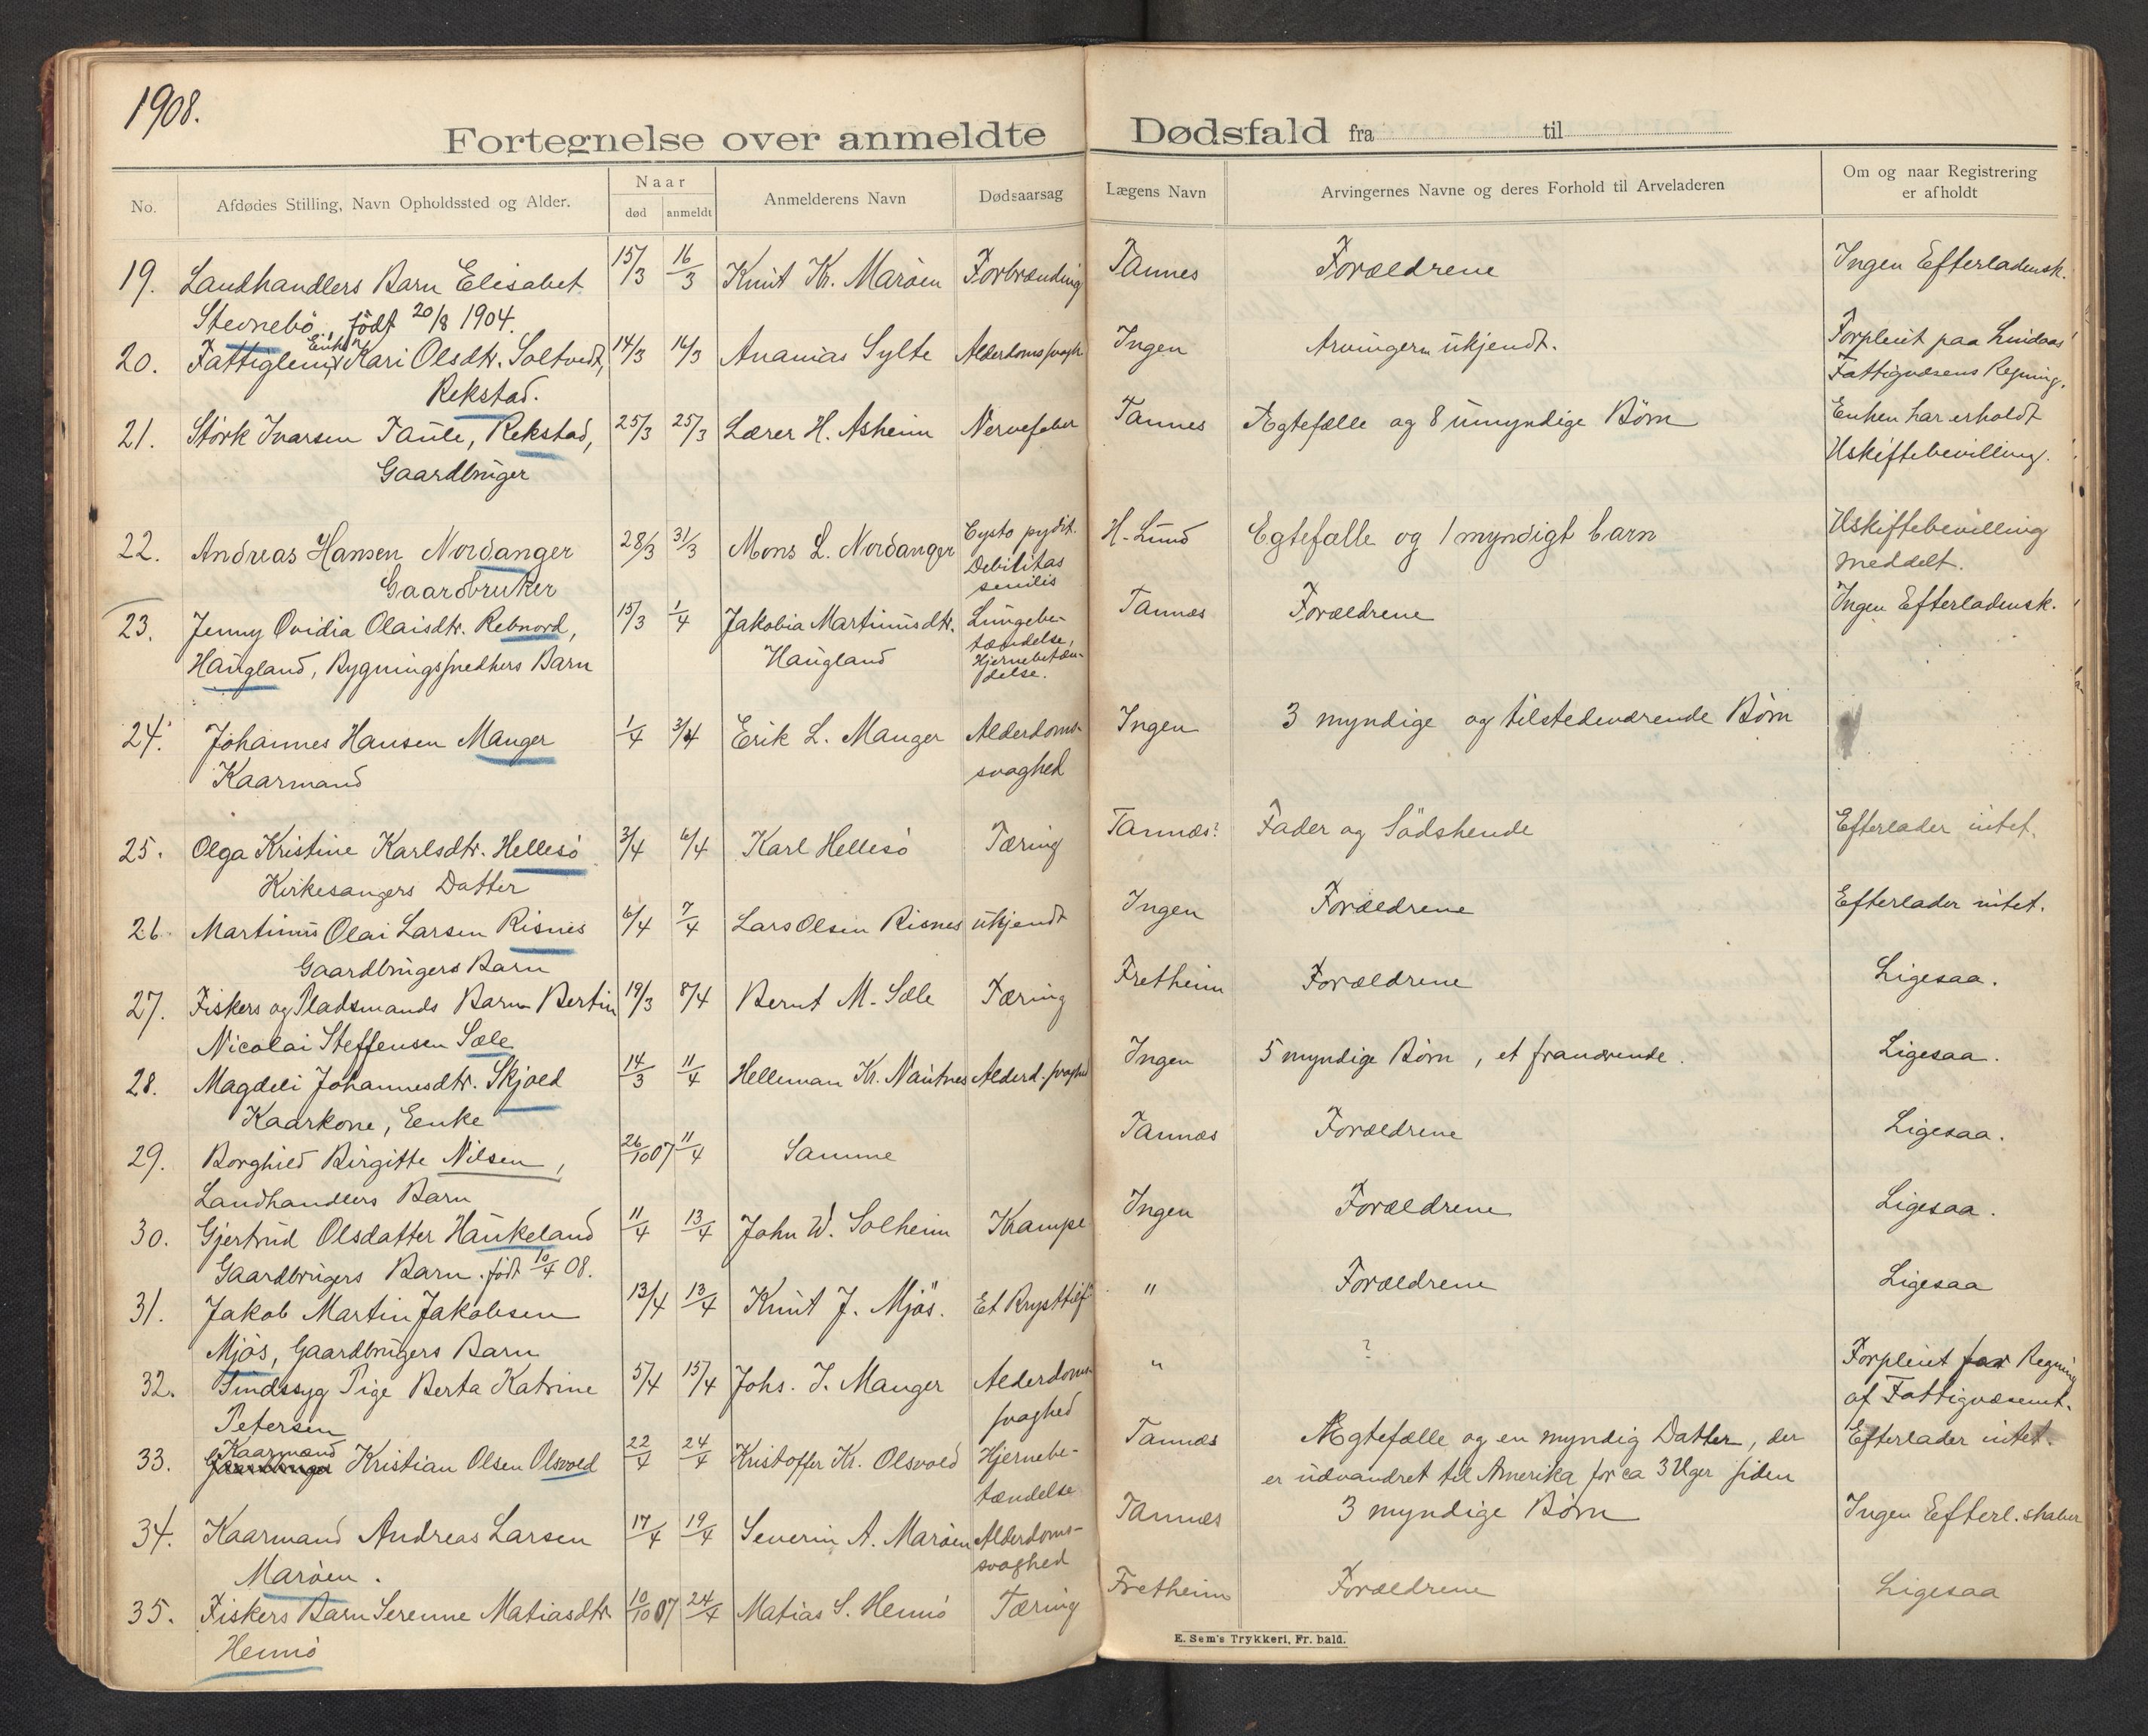 1908.
Fortegnelse over anmeldte Dødsfald fra til
No.
Afdødes Stilling, Navn Opholdssted og Alder.
Naar
død anmeldt
Anmelderens Navn
Dødsaarsag
Lægens Navn
Arvingernes Navne og deres Forhold til Arveladeren
Om og naar Registrering
er afholdt
19. Landhandlers Barn Elisabet 15/3 16/3 Knut Kr. Maröen Forbrænding Tannes Forældrene Ingen Efterladensk.
Stevnebö, födt 20/8 1904.
20. Fattiglem, Enken Kari Olsdtr. Soltvedt, 14/3 16/3 Ananias Sylte Alderdomssvagh. Ingen Arvingern ukjendt. Forpleiet paa Lindaas
Rekstad. Fattigvæsens Regning.
21. Störk Ivarsen Taule, Rekstad, 25/3 25/3 Lærer H. Asheim Nervefeber Tannes Ægtefælle og 8 umyndige Börn Enken har erholdt
Gaardbruger Uskiftebevilling.
22. Andreas Hansen Nordanger 28/3 31/3 Mons L. Nordanger Cysto pydit. H. Lund Egtefælle og 1 myndigt barn Uskiftebevilling
Gaardbruker Debilitas meddelt.
senilis
23. Jenny Ovidia Olaisdtr. Rebnord, 15/3 1/4 Jakobia Martinusdtr. Lungebe- Tannæs Forældrene Ingen Efterladensk.
Haugland, Bygningssnedkers Barn Haugland tændelse,
Hjernebetæn-
delse.
24. Johannes Hansen Manger 1/4 3/4 Erik L. Manger Alderdoms- Ingen 3 myndige og tilstedeværende Börn
Kaarmand svaghed
25. Olga Kristine Karlsdtr. Hellesö 3/4 6/4 Karl Hellesö Tæring Tannæs? Fader og Södskende Efterlader intet.
Kirkesangers Datter
26. Martinus Olai Larsen Risnes 6/4 7/4 Lars Olsen Risnes ukjendt Ingen Forældrene Efterlader intet.
Gaardbrugers Barn
27. Fiskers og Pladsmands Barn Bertin 19/3 8/4 Bernt M. Sæle Tæring Fretheim Forældrene Ligesaa.
Nicolai Steffensen Sæle
28. Magdeli Johannesdtr. Skjold 14/3 11/4 Helleman Kr. Nautnes Alderd. svaghed Ingen 5 myndige Börn, et fraværende. Ligesaa.
Kaarkone, Eenke
29. Borghild Birgitte Nilsen, 26/10 07 11/4 Samme Tannæs Forældrene Ligesaa.
Landhandlers Barn
30. Gjertrud Olsdatter Haukeland 11/4 13/4 John W. Solheim Krampe Ingen Forældrene Ligesaa.
Gaardbrugers Barn. födt 10/4 08.
31. Jakob Martin Jakobsen 13/4 13/4 Knut J. Mjös. Et Brysttilf " Forældrene Ligesaa
Mjös, Gaardbrugers Barn
32. Sindssyg Pige Berta Katrine 5/4 15/4 Johs. J. Manger Alderdoms " ? Forpleiet for Regning
Petersen svaghed af Fattigvæsenet.
33. Kaarmand Gaardbruger Kristian Olsen Olsvold 22/4 24/4 Kristoffer Kr. Olsvold Hjernebe- Tannæs Ægtefælle og en myndig Datter, der Efterlader intet.
tændelse er udvandret til Amerika for ca 3 Uger siden
34. Kaarmand Andreas Larsen 17/4 19/4 Severin A. Maröen Alderdoms- Tannæs 3 myndige Börn Ingen Efterl. skaber
Maröen. svaghed
35. Fiskers Barn Serenne Matiasdtr. 10/10 07 24/4 Matias S. Hennö Tæring Fretheim Forældrene Ligesaa
Hennö
E. Sem's Trykkeri, Fr.hald.